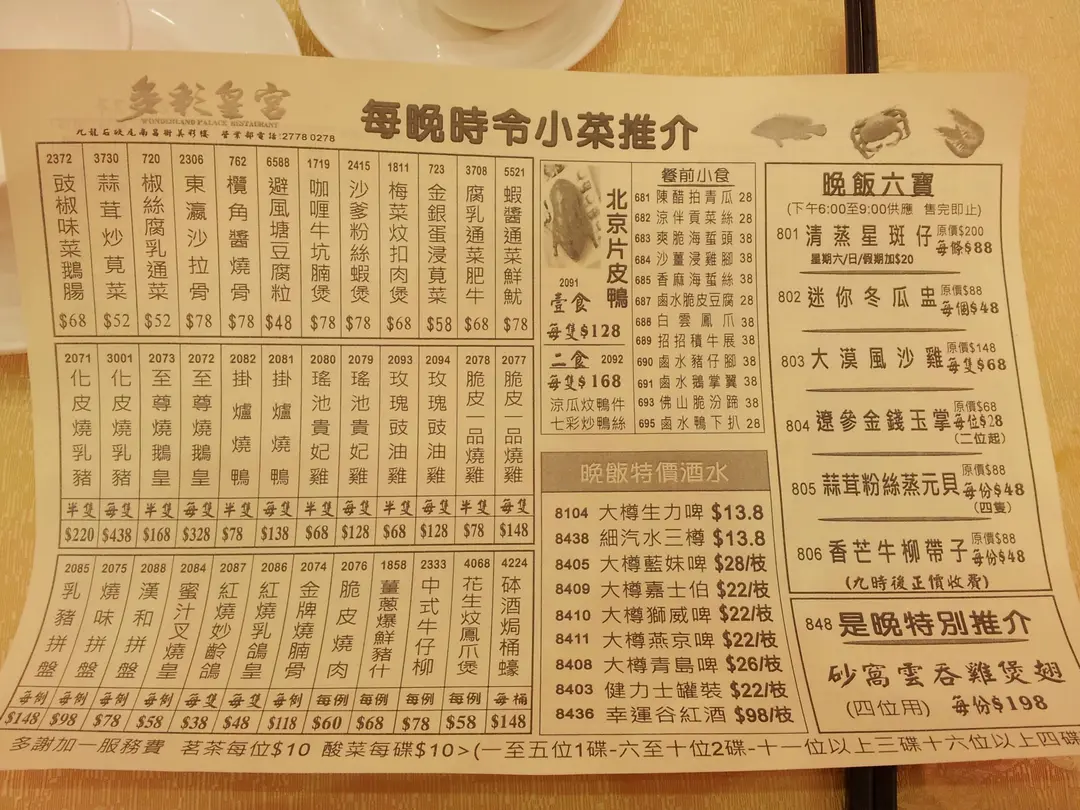 多彩皇宮
WONDERLAND PALACE RESTAURANT
九龍石硤尾南昌街美彩樓 營業部電話:2778 0278
每晚時令小菜推介
2372 豉椒味菜鵝腸 $68
3730 蒜茸炒莧菜 $52
720 椒絲腐乳通菜 $52
2306 東瀛沙拉骨 $78
762 欖角醬燒骨 $78
6588 避風塘豆腐粒 $48
1719 咖喱牛坑腩煲 $78
2415 沙爹粉絲蝦煲 $78
1811 梅菜炆扣肉煲 $68
723 金銀蛋浸莧菜 $58
3708 腐乳通菜肥牛 $68
5521 蝦醬通菜鮮魷 $78
2071 化皮燒乳豬 半隻 $220
3001 化皮燒乳豬 每隻 $438
2073 至尊燒鵝皇 半隻 $168
2072 至尊燒鵝皇 每隻 $328
2082 掛爐鴨 半隻 $78
2081 掛爐燒鴨 每隻 $138
2080 瑤池貴妃雞 半隻 $68
2079 瑤池貴妃雞 每隻 $128
2093 玫瑰豉油雞 半隻 $68
2094 玫瑰豉油雞 每隻 $128
2078 脆皮一品燒雞 半隻 $78
2077 脆皮一品燒雞 每隻 $148
2085 乳豬拼盤 每例 $148
2075 燒味拼盤 每例 $98
2088 漢和拼盤 每例 $78
2084 蜜汁叉燒皇 每例 $58
2087 紅燒妙齡鴿 每隻 $38
2086 紅燒乳鴿皇 每隻 $48
2074 金牌燒腩骨 每例 $118
2076 脆皮燒肉 每例 $60
1858 薑蔥爆鮮豬什 每例 $68
2333 中式牛仔柳 每例 $78
4068 花生炆鳳爪煲 每例 $58
4224 砵酒焗桶蠔 每桶 $148
北京片皮鴨
2091
壹食
每隻$128
二食 2092
每隻$168
涼瓜炆鴨件
七彩炒鴨絲
餐前小食
681 陳醋拍青瓜 28
682 涼伴貢菜絲 28
683 爽脆海蜇頭 38
684 沙薑浸雞腳 38
685 香麻海蜇絲 38
687 鹵水脆皮豆腐 28
688 白雲鳳爪 38
689 招招積牛展 38
690 鹵水豬仔腳 38
691 鹵水鵝掌翼 38
693 佛山脆汾蹄 38
695 鹵水鴨下扒 28
晚飯特價酒水
8104 大樽生力啤 $13.8
8438 細汽水三樽 $13.8
8405 大樽藍妹啤 $28/枝
8409 大樽嘉士伯 $22/枝
8410 大樽獅威啤 $22/枝
8411 大樽燕京啤 $22/枝
8408 大樽青島啤 $26/枝
8403 健力士罐裝 $22/枝
8436 幸運谷紅酒 $98/枝
晚飯六寶
(下午6:00至9:00供應 售完即止)
801 清蒸星斑仔 原價$200 每條$88
星期六/日/假期加$20
802 迷你冬瓜盅 原價$88 每個$48
803 大漠風沙雞 原價$148 每隻$68
804 遼參金錢玉掌 原價$68 每位$28
(二位起)
805 蒜茸粉絲蒸元貝 原價$88 每份$48
(四隻)
806 香芒牛柳帶子 原價$88 每份$48
(九時後正價收費)
848 是晚特別推介
砂窩雲吞雞煲翅
(四位用) 每份$198
多謝加一服務費 茗茶每位$10 酸菜每碟$10>(一至五位1碟-六至十位2碟-十一位以上三碟十六位以上四碟